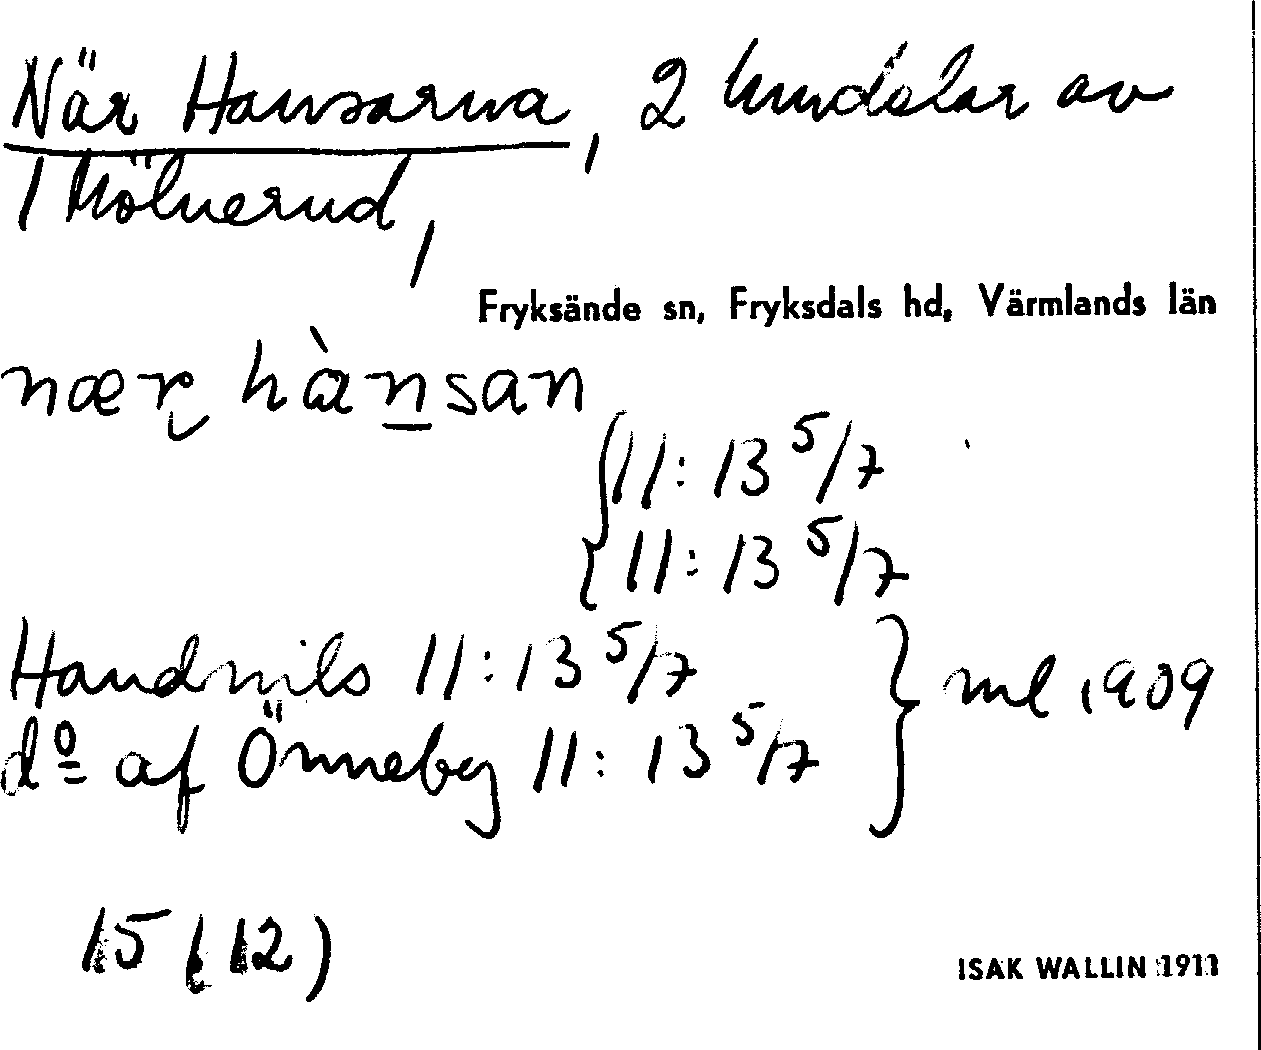 När Hansarna, 2 hemdelar av
1 Mölnerud,
Fryksände sn, Fryksdals hd, Värmlands län
nær hànsan
11: 13 5/7
11: 13 5/7
Handnils 11: 13 5/7
do af Önneby 11: 13 5/7
ml 1909
15 (12)
ISAK WALLIN 1911